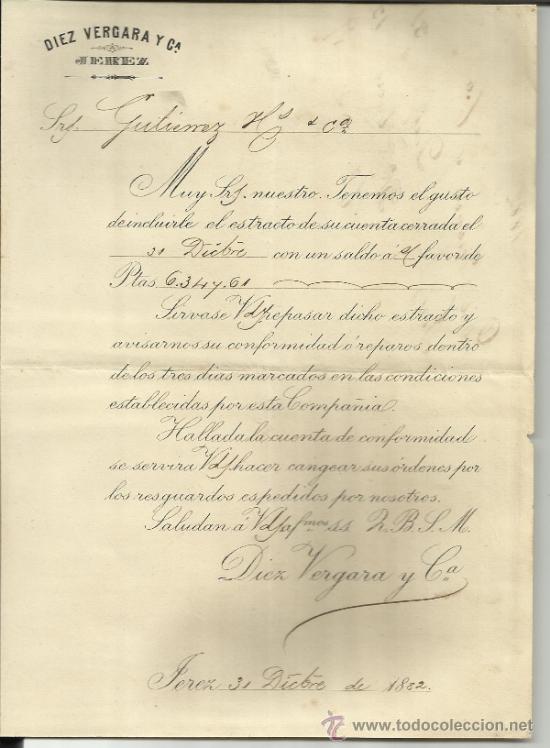 DIEZ VERGARA Y Cª
JEREZ
Srs. Gutierrez Hs & Cª
Muy Srs. nuestro. Tenemos el gusto
de incluirle el estracto de su cuenta cerrada el
31 Dicbre con un saldo á favor de
Ptas. 6.347,61
Sirvase Vds. repasar dicho estracto y
avisarnos su conformidad ó reparos dentro
de los tres dias marcados en las condiciones
establecidas por esta Compañia.
Hallada la cuenta de conformidad
se servira Vds. hacer cangear sus órdenes por
los resguardos espedidos por nosotros.
Saludan á Vds. afmos. ss. Q. B. S. M.
Diez Vergara y Cª
Jerez 31 Dicbre de 1882.
www.todocoleccion.net